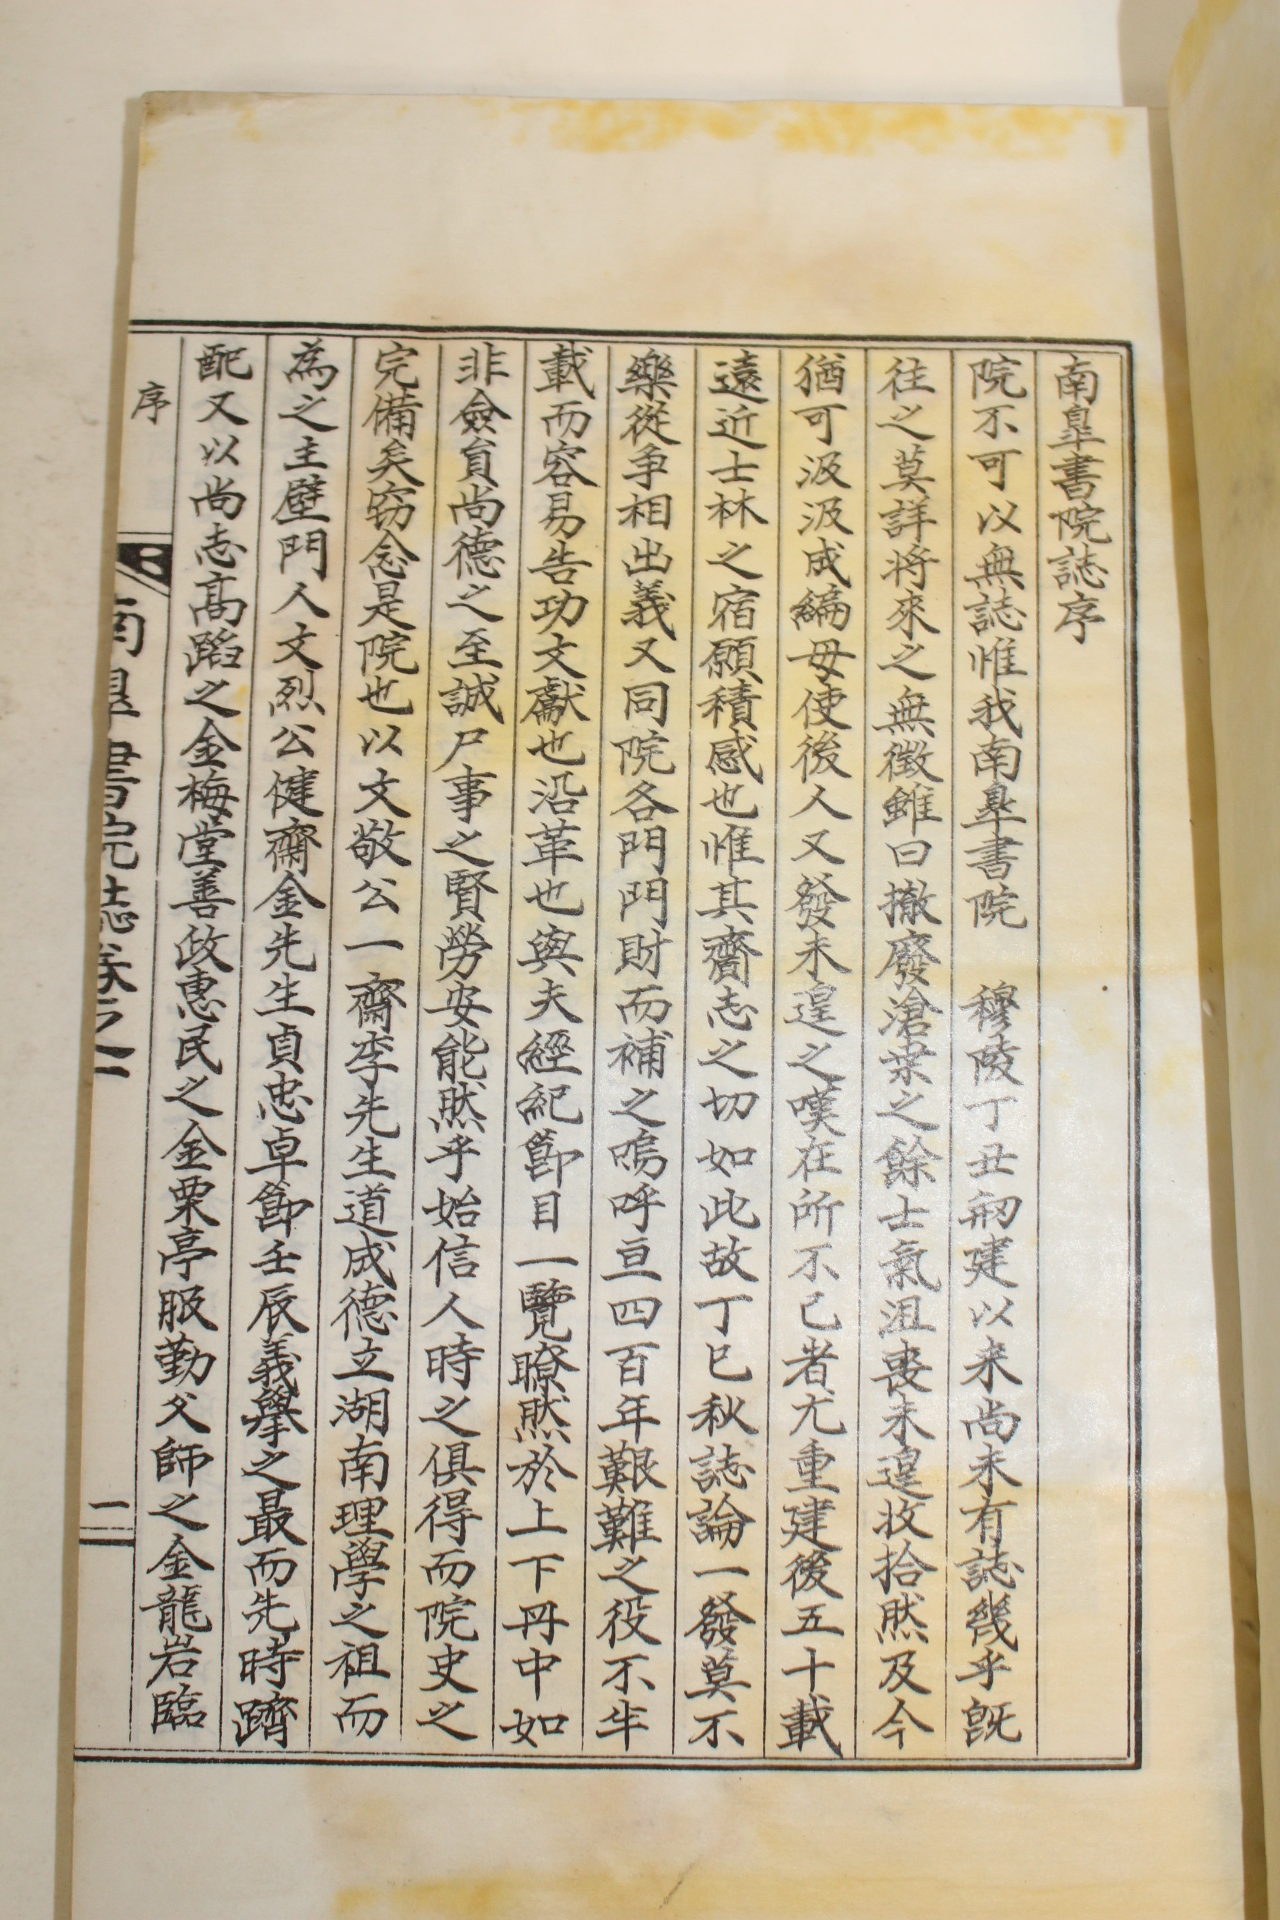 南皐書院誌序
院不可以無誌惟我南皐書院 穆陵丁丑刱建以来尚未有誌幾乎旣
往之莫詳将來之無徴雖曰撤廢滄桒之餘士氣沮喪未遑收拾然及今
猶可汲汲成編毋使後人又發未遑之嘆在所不已者尤重建後五十載
遠近士林之宿願積感也惟其齎志之切如此故丁巳秋誌論一發莫不
樂從争相出義又同院各門門財而補之嗚呼亘四百年艱難之役不半
載而容易告功文獻也沿革也與夫經紀節目一覽瞭然於上下冊中如
非僉員尚德之至誠尸事之賢勞安能然乎始信人時之俱得而院史之
完備矣窃念是院也以文敬公一齋李先生道成德立湖南理學之祖而
為之主壁門人文烈公健齋金先生貞忠卓節壬辰義擧之最而先時躋
配又以尚志高蹈之金梅堂善政惠民之金栗亭服勤父師之金龍岩臨
序
南皐書院誌卷之一
一